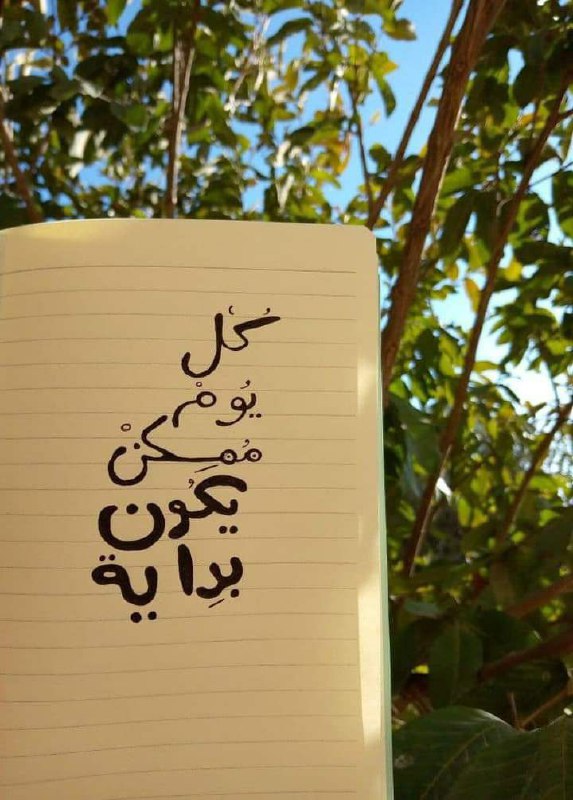 كُلّ
يُومْ
مُمِكنْ
يكُون
بدِاية